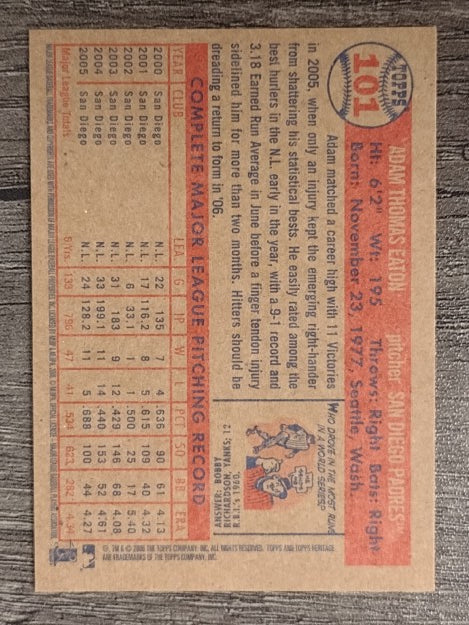 TOPPS
101
ADAM THOMAS EATON pitcher SAN DIEGO PADRES
Ht: 6'2" Wt: 195 Throws: Right Bats: Right
Born: November 23, 1977, Seattle, Wash.
Adam matched a career high with 11 Victories
in 2005, when only an injury kept the emerging right-hander
from shattering his statistical bests. He easily rated among the
best hurlers in the N.L. early in the year, with a 9-1 record and
3.18 Earned Run Average in June before a finger tendon injury
sidelined him for more than two months. Hitters should be
dreading a return to form in '06.
WHO DROVE IN THE MOST RUNS
IN A WORLD SERIES?
ANSWER: BOBBY
RICHARDSON, YANKS, 12
R.B.I.'S (1960).
COMPLETE MAJOR LEAGUE PITCHING RECORD
YEAR CLUB LEA. G IP W L PCT SO BB ERA
2000 San Diego N.L. 22 135 7 4 .636 90 61 4.13
2001 San Diego N.L. 17 116.2 8 5 .615 109 40 4.32
2002 San Diego N.L. 6 33.1 1 1 .500 25 17 5.40
2003 San Diego N.L. 31 183 9 12 .429 146 68 4.08
2004 San Diego N.L. 33 199.1 11 14 .440 153 52 4.61
2005 San Diego N.L. 24 128.2 11 5 .688 100 44 4.27
Major League Totals 6 Yrs. 133 796 47 41 .534 623 282 4.34
® TM & © 2006 THE TOPPS COMPANY, INC. ALL RIGHTS RESERVED. TOPPS AND TOPPS HERITAGE
ARE TRADEMARKS OF THE TOPPS COMPANY, INC.